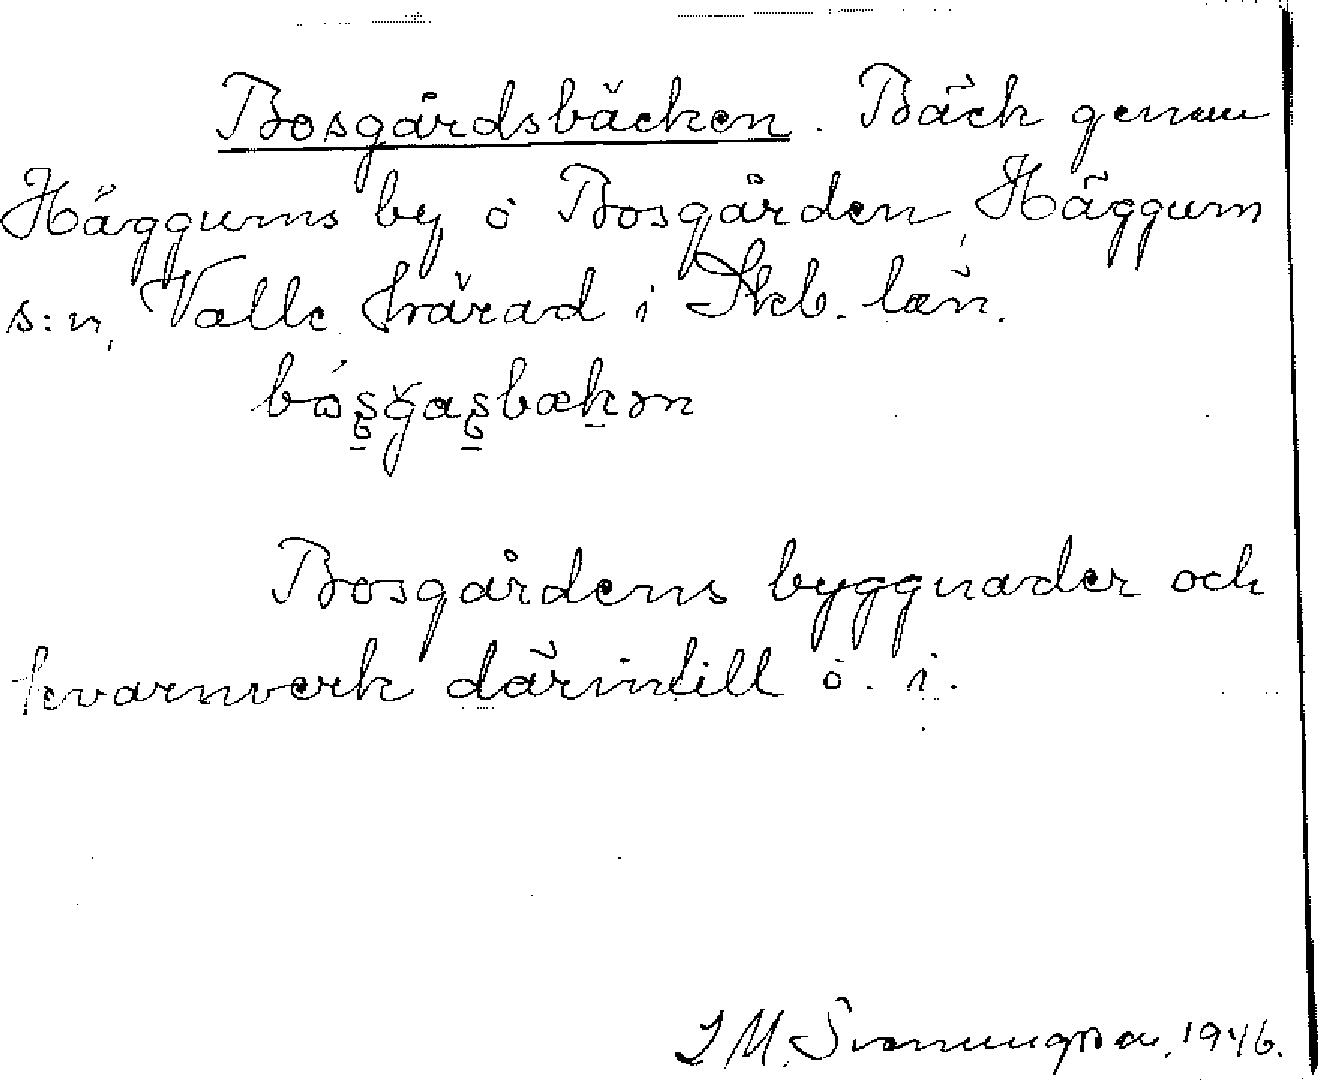 Bosgårdsbäcken. Bäck genom
Häggums by ö Bosgården, Häggum
s:n, Valle härad i Skb. län.
Bosgårdens byggnader och
kvarnverk därintill ö. i.
1946.